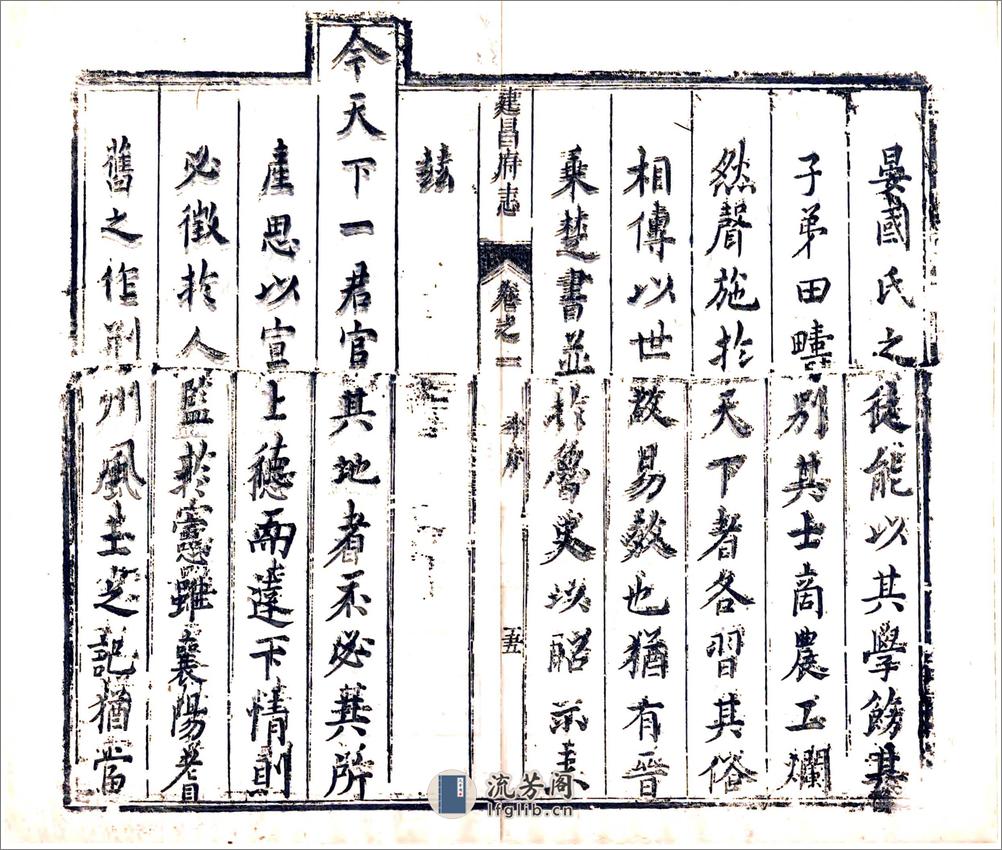 晏國氏之徒能以其學餙其
子弟田疇別其士商農工爛
然聲施於天下者各習其俗
相傳以世故易斆也猶有晉
乗楚書並於魯吏以昭示来
玆
建昌府志
卷之一
五
今天下一君官其地者不必其所
產思以宣上德而達下情則
必徵於人監於憲雖襄陽耆
舊之作荆州風土之記猶當
流芳阁
lfglib.cn